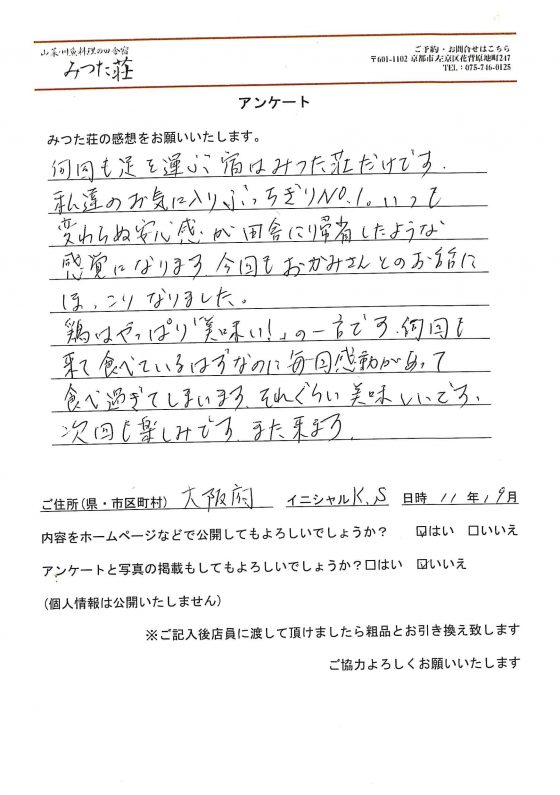 山菜・川魚料理の田舎宿
みつた荘
ご予約・お問合せはこちら
〒601-1102 京都市左京区花背原地町247
TEL：075-746-0125
アンケート
みつた荘の感想をお願いいたします。
何回も足を運ぶ宿はみつた荘だけです.
私達のお気に入りぶっちぎりNO.1。いつも
変わらぬ安心感が田舎に帰省したような
感覚になります 今回もおかみさんとのお話に
ほっこりなりました。
鶏はやっぱり「美味い!」の一言です.何回も
来て食べているはずなのに毎回感動があって
食べ過ぎてしまいます.それぐらい美味しいです、
次回も楽しみです.また来ます.
ご住所(県・市区町村) 大阪府 イニシャル K.S 日時 11年 19月
内容をホームページなどで公開してもよろしいでしょうか？ ☑はい □いいえ
アンケートと写真の掲載もしてもよろしいでしょうか？□はい ☑いいえ
(個人情報は公開いたしません)
※ご記入後店員に渡して頂けましたら粗品とお引き換え致します
ご協力よろしくお願いいたします